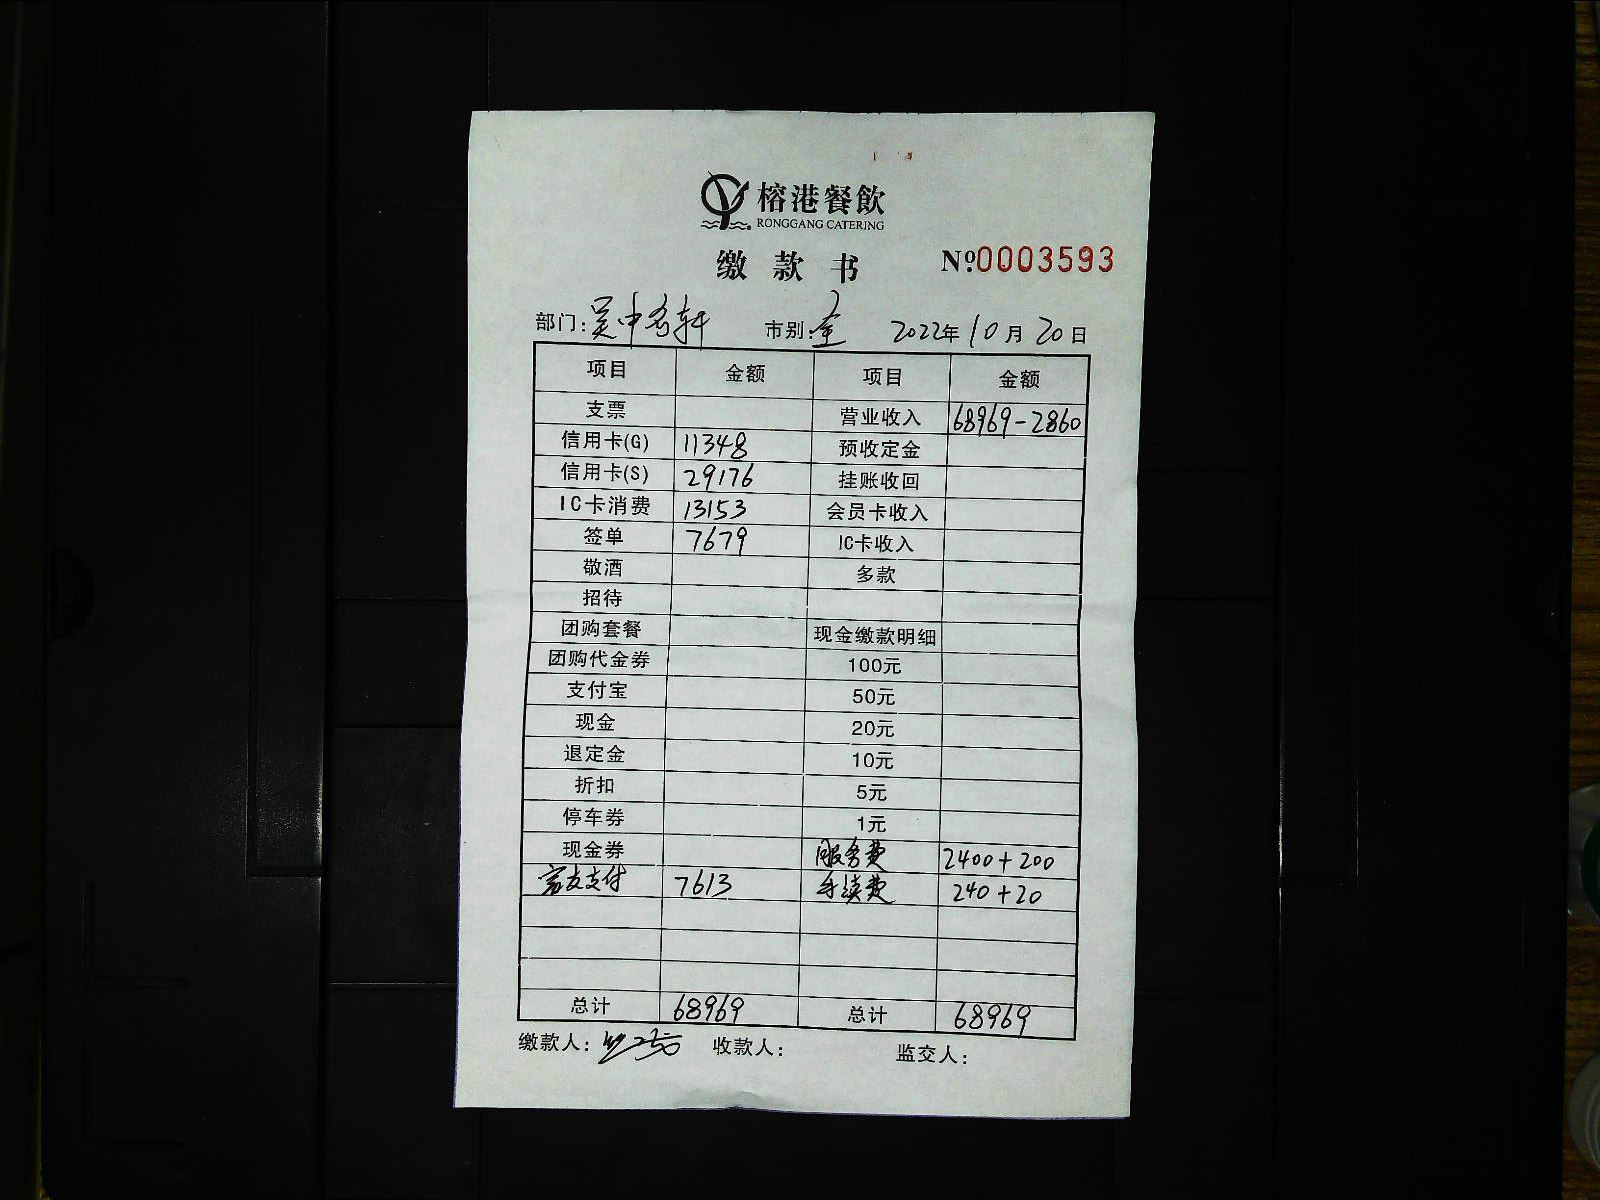 榕港餐飲
RONGGANG CATERING
缴款书 №0003593
部门: 吴中名轩 市别: 全 2022年10月20日
项目 金额 项目 金额
支票 营业收入 68969-2860
信用卡(G) 11348 预收定金
信用卡(S) 29176 挂账收回
IC卡消费 13153 会员卡收入
签单 7679 IC卡收入
敬酒 多款
招待
团购套餐 现金缴款明细
团购代金券 100元
支付宝 50元
现金 20元
退定金 10元
折扣 5元
停车券 1元
现金券 服务费 2400+200
支付 7613 手续费 240+20
总计 68969 总计 68969
缴款人: 收款人: 监交人: